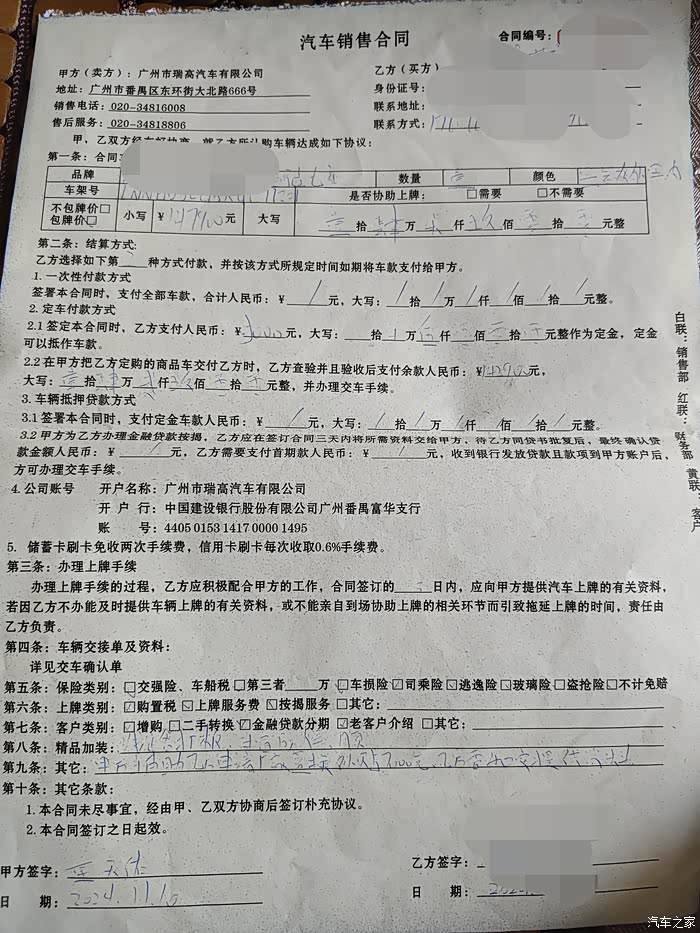 汽车销售合同
合同编号:
甲方(卖方):广州市瑞高汽车有限公司
乙方(买方)
地址:广州市番禺区东环街大北路666号
身份证号:
销售电话:020-34816008
联系地址:
售后服务:020-34818806
联系方式:
甲,乙双方经友好协商,就乙方所订购车辆达成如下协议:
第一条:合同
品牌 数量 壹 颜色
车架号 是否协助上牌: □需要 □不需要
不包牌价□ 包牌价□ 小写 ¥147900元 大写 壹拾肆万 仟玖佰零拾零元整
第二条:结算方式:
乙方选择如下第 种方式付款,并按该方式所规定时间如期将车款支付给甲方。
1.一次性付款方式
签署本合同时,支付全部车款,合计人民币:¥/元,大写:/拾/万/仟/佰/拾/元整。
2.定车付款方式
2.1签定本合同时,乙方支付人民币:¥ 元,大写: 拾 万 仟 佰 拾 元整作为定金,定金
可以抵作车款。
2.2在甲方把乙方定购的商品车交付乙方时,乙方查验并且验收后支付余款人民币:¥142900元,
大写:壹拾肆万 仟玖佰零拾零元整,并办理交车手续。
3.车辆抵押贷款方式
3.1签署本合同时,支付定金车款人民币:¥/元,大写:/拾/万/仟/佰/拾/元整。
3.2甲方为乙方办理金融贷款按揭,乙方应在签订合同三天内将所需资料交给甲方,待乙方同贷书批复后,最终确认贷
款金额人民币:¥/元,乙方需要支付首期款人民币:¥/元,收到银行发放贷款且款项到甲方账户后,
方可办理交车手续。
4.公司账号 开户名称:广州市瑞高汽车有限公司
开 户 行:中国建设银行股份有限公司广州番禺富华支行
账 号:4405 0153 1417 0000 1495
5. 储蓄卡刷卡免收两次手续费,信用卡刷卡每次收取0.6%手续费。
第三条:办理上牌手续
办理上牌手续的过程,乙方应积极配合甲方的工作,合同签订的 日内,应向甲方提供汽车上牌的有关资料,
若因乙方不办能及时提供车辆上牌的有关资料,或不能亲自到场协助上牌的相关环节而引致拖延上牌的时间,责任由
乙方负责。
第四条:车辆交接单及资料:
详见交车确认单
第五条:保险类别:□交强险、车船税□第三者 万□车损险☑司乘险☑逃逸险☑玻璃险□盗抢险□不计免赔
第六条:上牌类别:☑购置税☑上牌服务费☑按揭服务□其它:
第七条:客户类别:□增购□二手转换☑金融贷款分期☑老客户介绍□其它:
第八条:精品加装:
第九条:其它:
第十条:其它条款:
1.本合同未尽事宜,经由甲、乙双方协商后签订补充协议。
2.本合同签订之日起效。
甲方签字:
乙方签字:
日 期:2024.11.10
日 期:
白联:销售部 红联:财务部 黄联:客户
汽车之家